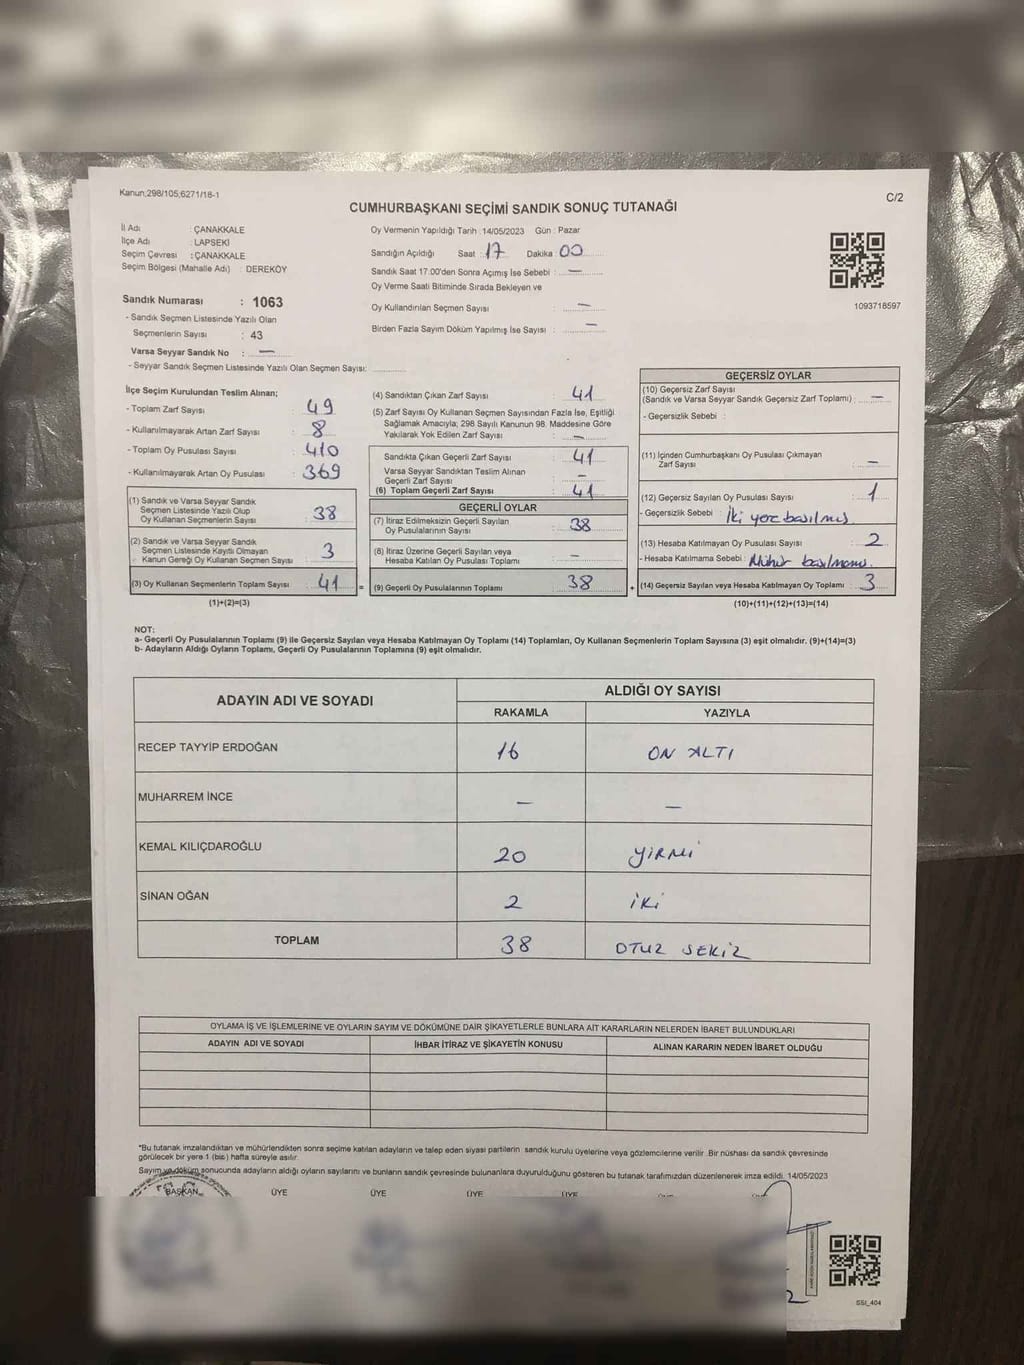 Kanun;298/105,6271/18-1
C/2
CUMHURBAŞKANI SEÇİMİ SANDIK SONUÇ TUTANAĞI
İl Adı : ÇANAKKALE
İlçe Adı : LAPSEKİ
Seçim Çevresi : ÇANAKKALE
Seçim Bölgesi (Mahalle Adı) : DEREKÖY
Sandık Numarası : 1063
- Sandık Seçmen Listesinde Yazılı Olan
Seçmenlerin Sayısı : 43
Varsa Seyyar Sandık No : —
- Seyyar Sandık Seçmen Listesinde Yazılı Olan Seçmen Sayısı:
Oy Vermenin Yapıldığı Tarih : 14/05/2023 Gün : Pazar
Sandığın Açıldığı Saat : 17 Dakika : 00
Sandık Saat 17.00'den Sonra Açılmış İse Sebebi : —
Oy Verme Saati Bitiminde Sırada Bekleyen ve
Oy Kullandırılan Seçmen Sayısı : —
Birden Fazla Sayım Döküm Yapılmış İse Sayısı : —
1093718597
İlçe Seçim Kurulundan Teslim Alınan;
- Toplam Zarf Sayısı : 49
- Kullanılmayarak Artan Zarf Sayısı : 8
- Toplam Oy Pusulası Sayısı : 410
- Kullanılmayarak Artan Oy Pusulası : 369
(1) Sandık ve Varsa Seyyar Sandık
Seçmen Listesinde Yazılı Olup
Oy Kullanan Seçmenlerin Sayısı : 38
(2) Sandık ve Varsa Seyyar Sandık
Seçmen Listesinde Kayıtlı Olmayan
Kanun Gereği Oy Kullanan Seçmen Sayısı : 3
(3) Oy Kullanan Seçmenlerin Toplam Sayısı : 41
(1)+(2)=(3)
(4) Sandıktan Çıkan Zarf Sayısı : 41
(5) Zarf Sayısı Oy Kullanan Seçmen Sayısından Fazla İse, Eşitliği
Sağlamak Amacıyla; 298 Sayılı Kanunun 98. Maddesine Göre
Yakılarak Yok Edilen Zarf Sayısı : —
Sandıkta Çıkan Geçerli Zarf Sayısı : 41
Varsa Seyyar Sandıktan Teslim Alınan
Geçerli Zarf Sayısı : —
(6) Toplam Geçerli Zarf Sayısı : 41
GEÇERLİ OYLAR
(7) İtiraz Edilmeksizin Geçerli Sayılan
Oy Pusulalarının Sayısı : 38
(8) İtiraz Üzerine Geçerli Sayılan veya
Hesaba Katılan Oy Pusulası Toplamı : —
= (9) Geçerli Oy Pusulalarının Toplamı : 38
GEÇERSİZ OYLAR
(10) Geçersiz Zarf Sayısı
(Sandık ve Varsa Seyyar Sandık Geçersiz Zarf Toplamı) : —
- Geçersizlik Sebebi :
(11) İçinden Cumhurbaşkanı Oy Pusulası Çıkmayan
Zarf Sayısı : —
(12) Geçersiz Sayılan Oy Pusulası Sayısı : 1
- Geçersizlik Sebebi : İki yere basılmış
(13) Hesaba Katılmayan Oy Pusulası Sayısı : 2
- Hesaba Katılmama Sebebi : Mühür basılmamış.
+ (14) Geçersiz Sayılan veya Hesaba Katılmayan Oy Toplamı : 3
(10)+(11)+(12)+(13)=(14)
NOT:
a- Geçerli Oy Pusulalarının Toplamı (9) ile Geçersiz Sayılan veya Hesaba Katılmayan Oy Toplamı (14) Toplamları, Oy Kullanan Seçmenlerin Toplam Sayısına (3) eşit olmalıdır. (9)+(14)=(3)
b- Adayların Aldığı Oyların Toplamı, Geçerli Oy Pusulalarının Toplamına (9) eşit olmalıdır.
ADAYIN ADI VE SOYADI ALDIĞI OY SAYISI
RAKAMLA YAZIYLA
RECEP TAYYİP ERDOĞAN 16 ON ALTI
MUHARREM İNCE — —
KEMAL KILIÇDAROĞLU 20 YİRMİ
SİNAN OĞAN 2 İKİ
TOPLAM 38 OTUZ SEKİZ
OYLAMA İŞ VE İŞLEMLERİNE VE OYLARIN SAYIM VE DÖKÜMÜNE DAİR ŞİKAYETLERLE BUNLARA AİT KARARLARIN NELERDEN İBARET BULUNDUKLARI
ADAYIN ADI VE SOYADI İHBAR İTİRAZ VE ŞİKAYETİN KONUSU ALINAN KARARIN NEDEN İBARET OLDUĞU
*Bu tutanak imzalandıktan ve mühürlendikten sonra seçime katılan adayların ve talep eden siyasi partilerin sandık kurulu üyelerine veya gözlemcilerine verilir. Bir nüshası da sandık çevresinde
görülecek bir yere 1 (bir) hafta süreyle asılır.
Sayım ve döküm sonucunda adayların aldığı oyların sayılarını ve bunların sandık çevresinde bulunanlara duyurulduğunu gösteren bu tutanak tarafımızdan düzenlenerek imza edildi. 14/05/2023
BAŞKAN ÜYE ÜYE ÜYE ÜYE
SSI_404